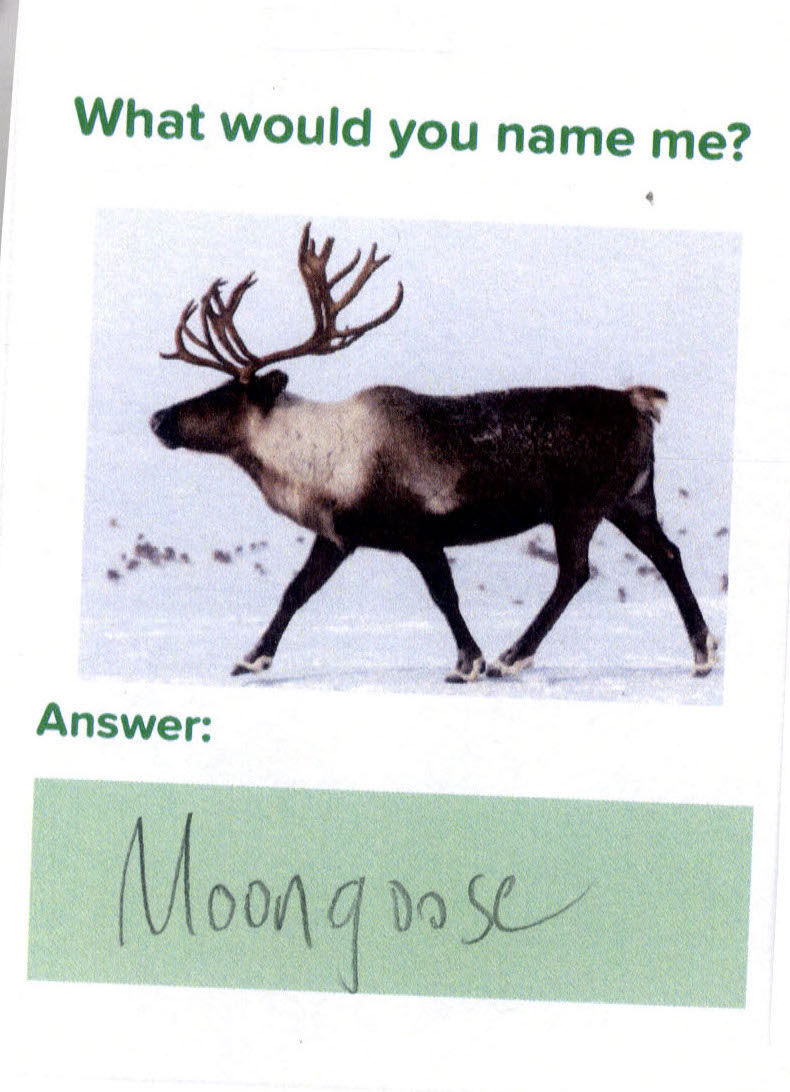 What would you name me?
Answer:
Moongoose